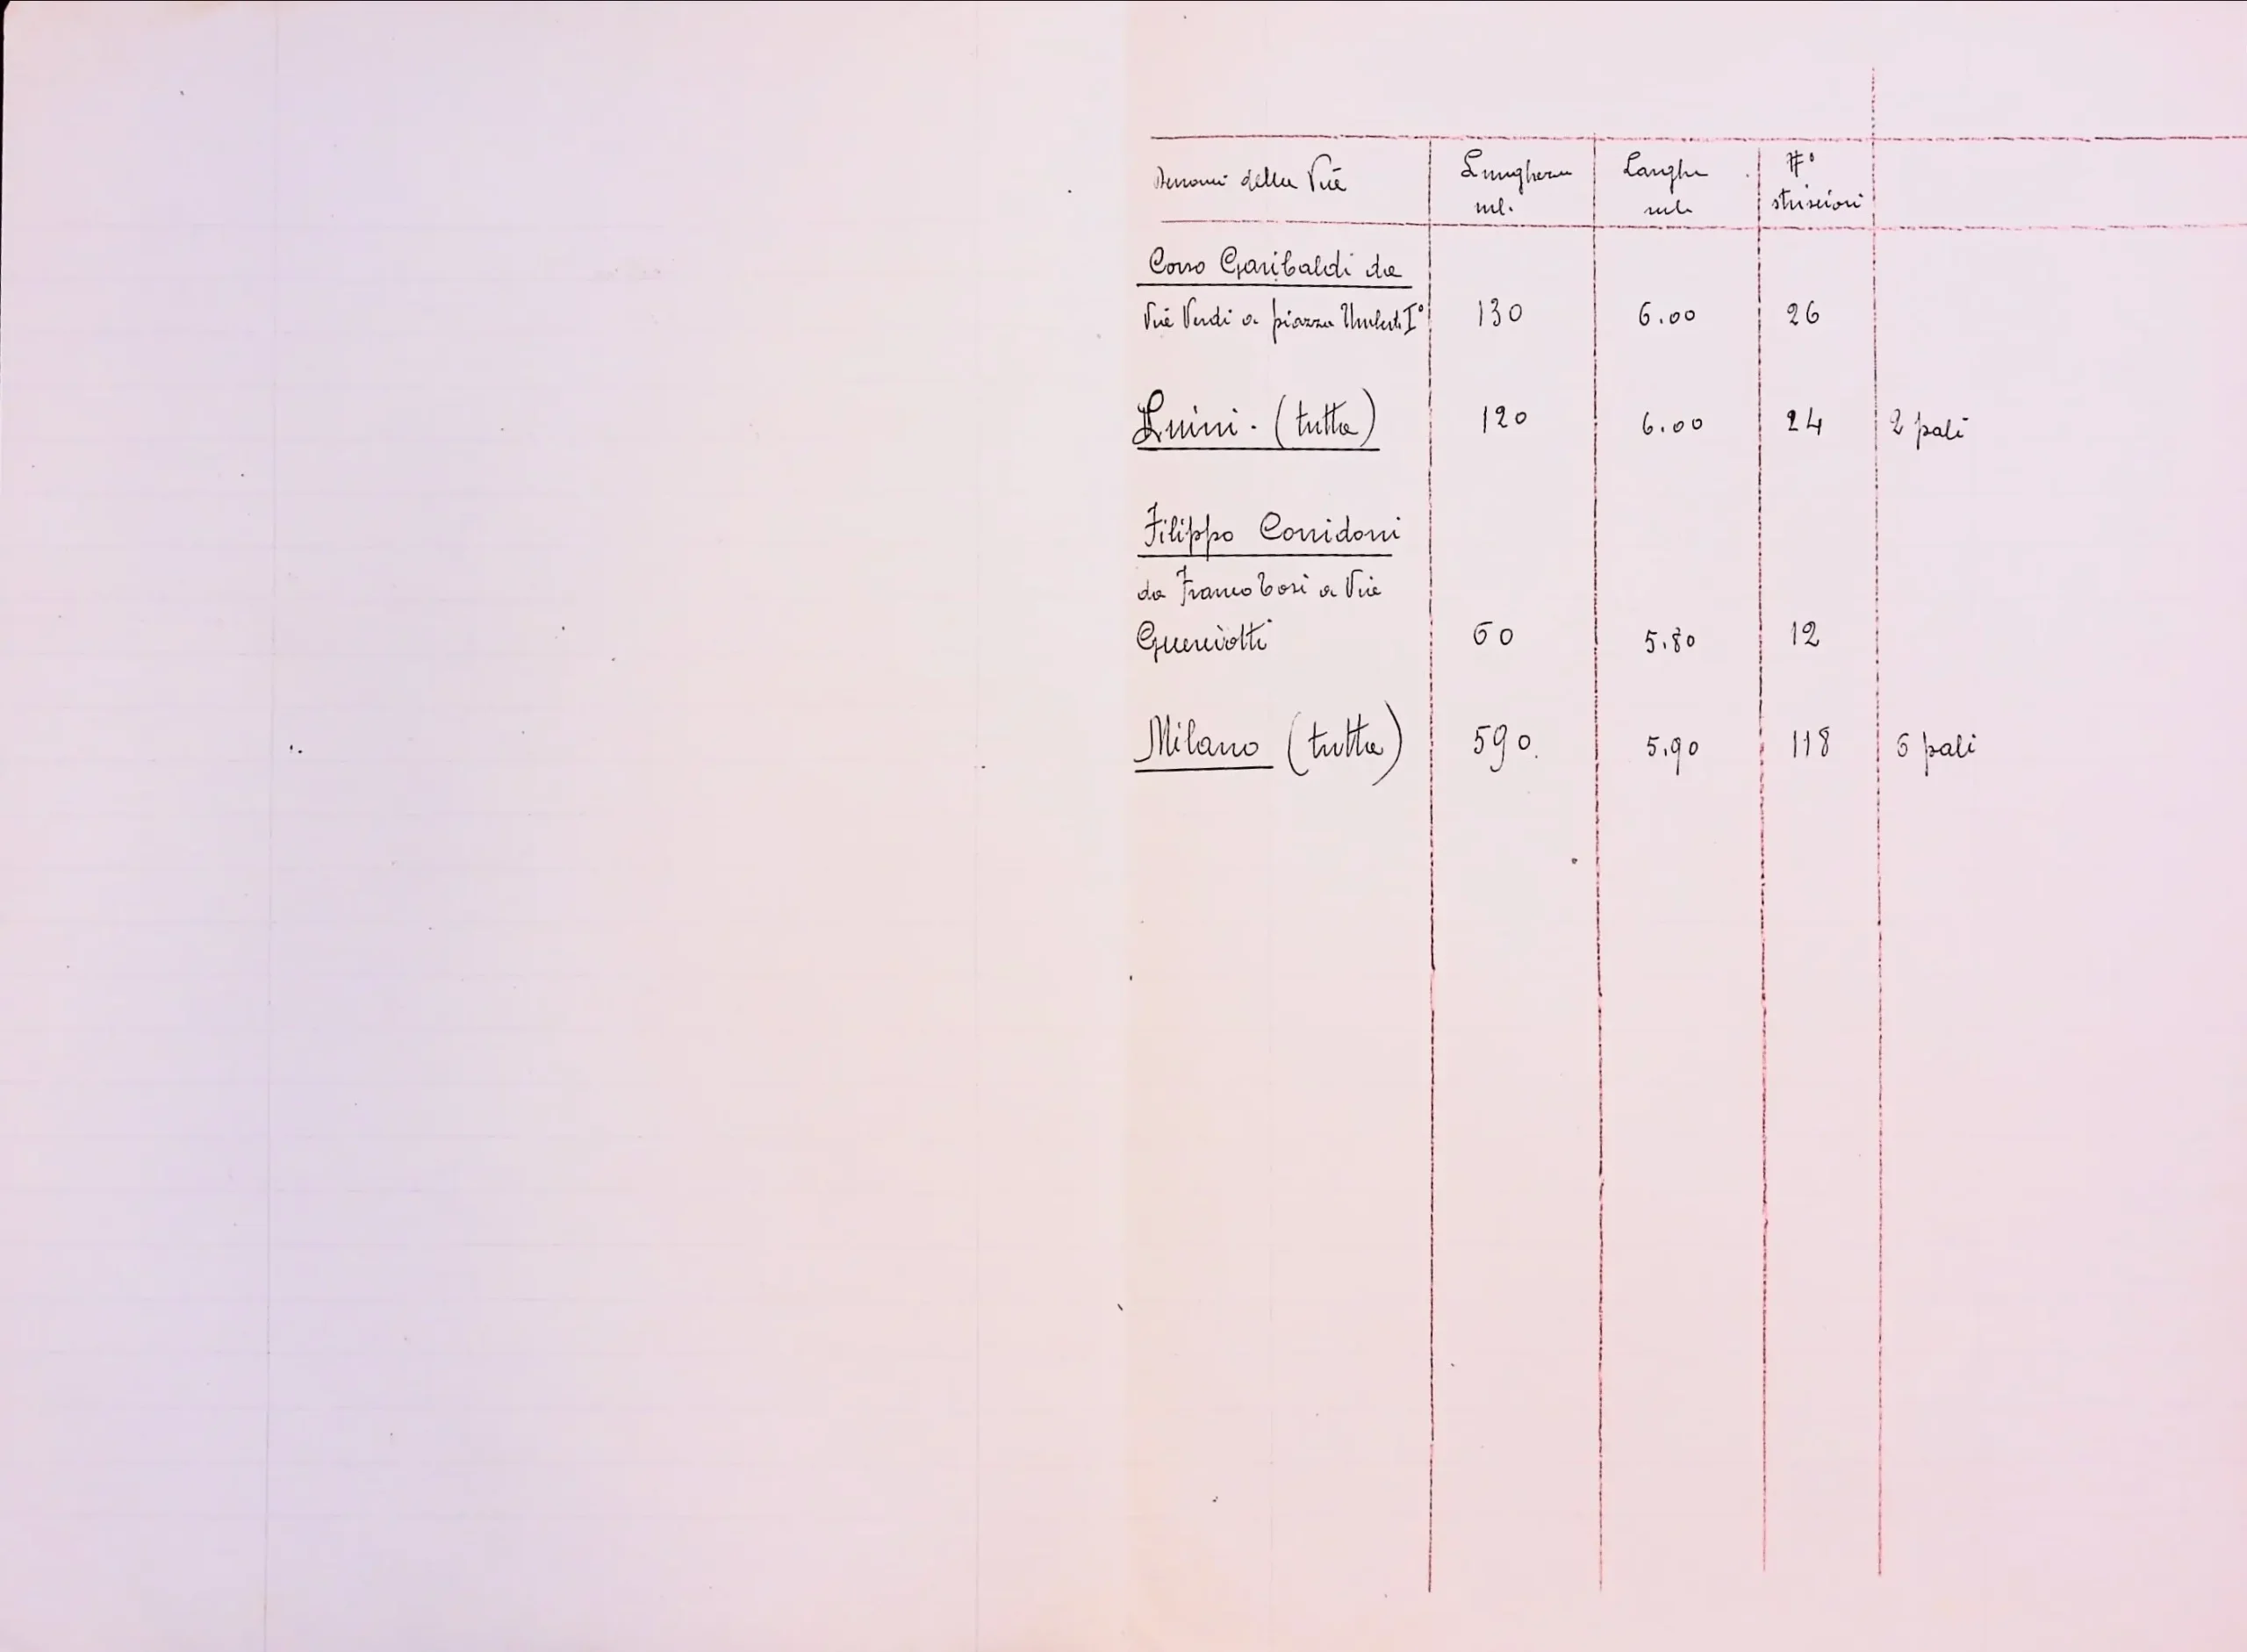 Denomi della Via Lunghezza ml. Larghe ml. N° striscioni
Corso Garibaldi da
Via Verdi a piazza Umberto I° 130 6.00 26
Luini - (tutta) 120 6.00 24 2 pali
Filippo Corridoni
da Franco Tosi a Via
Guerciotti 60 5.80 12
Milano (tutta) 590. 5.90 118 6 pali